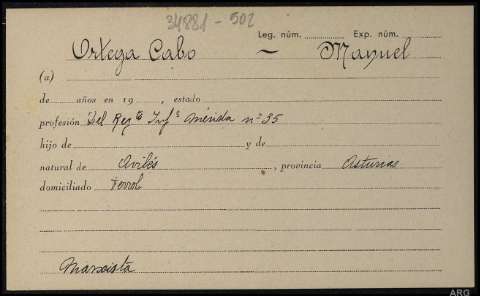 34881 - 502
Leg. núm. Exp. núm.
Ortega Cabo ~ Manuel
(a)
de años en 19 , estado
profesión Del Regto Infª Mérida nº 35
hijo de y de
natural de Avilés , provincia Asturias
domiciliado Ferrol
Marxista
ARG